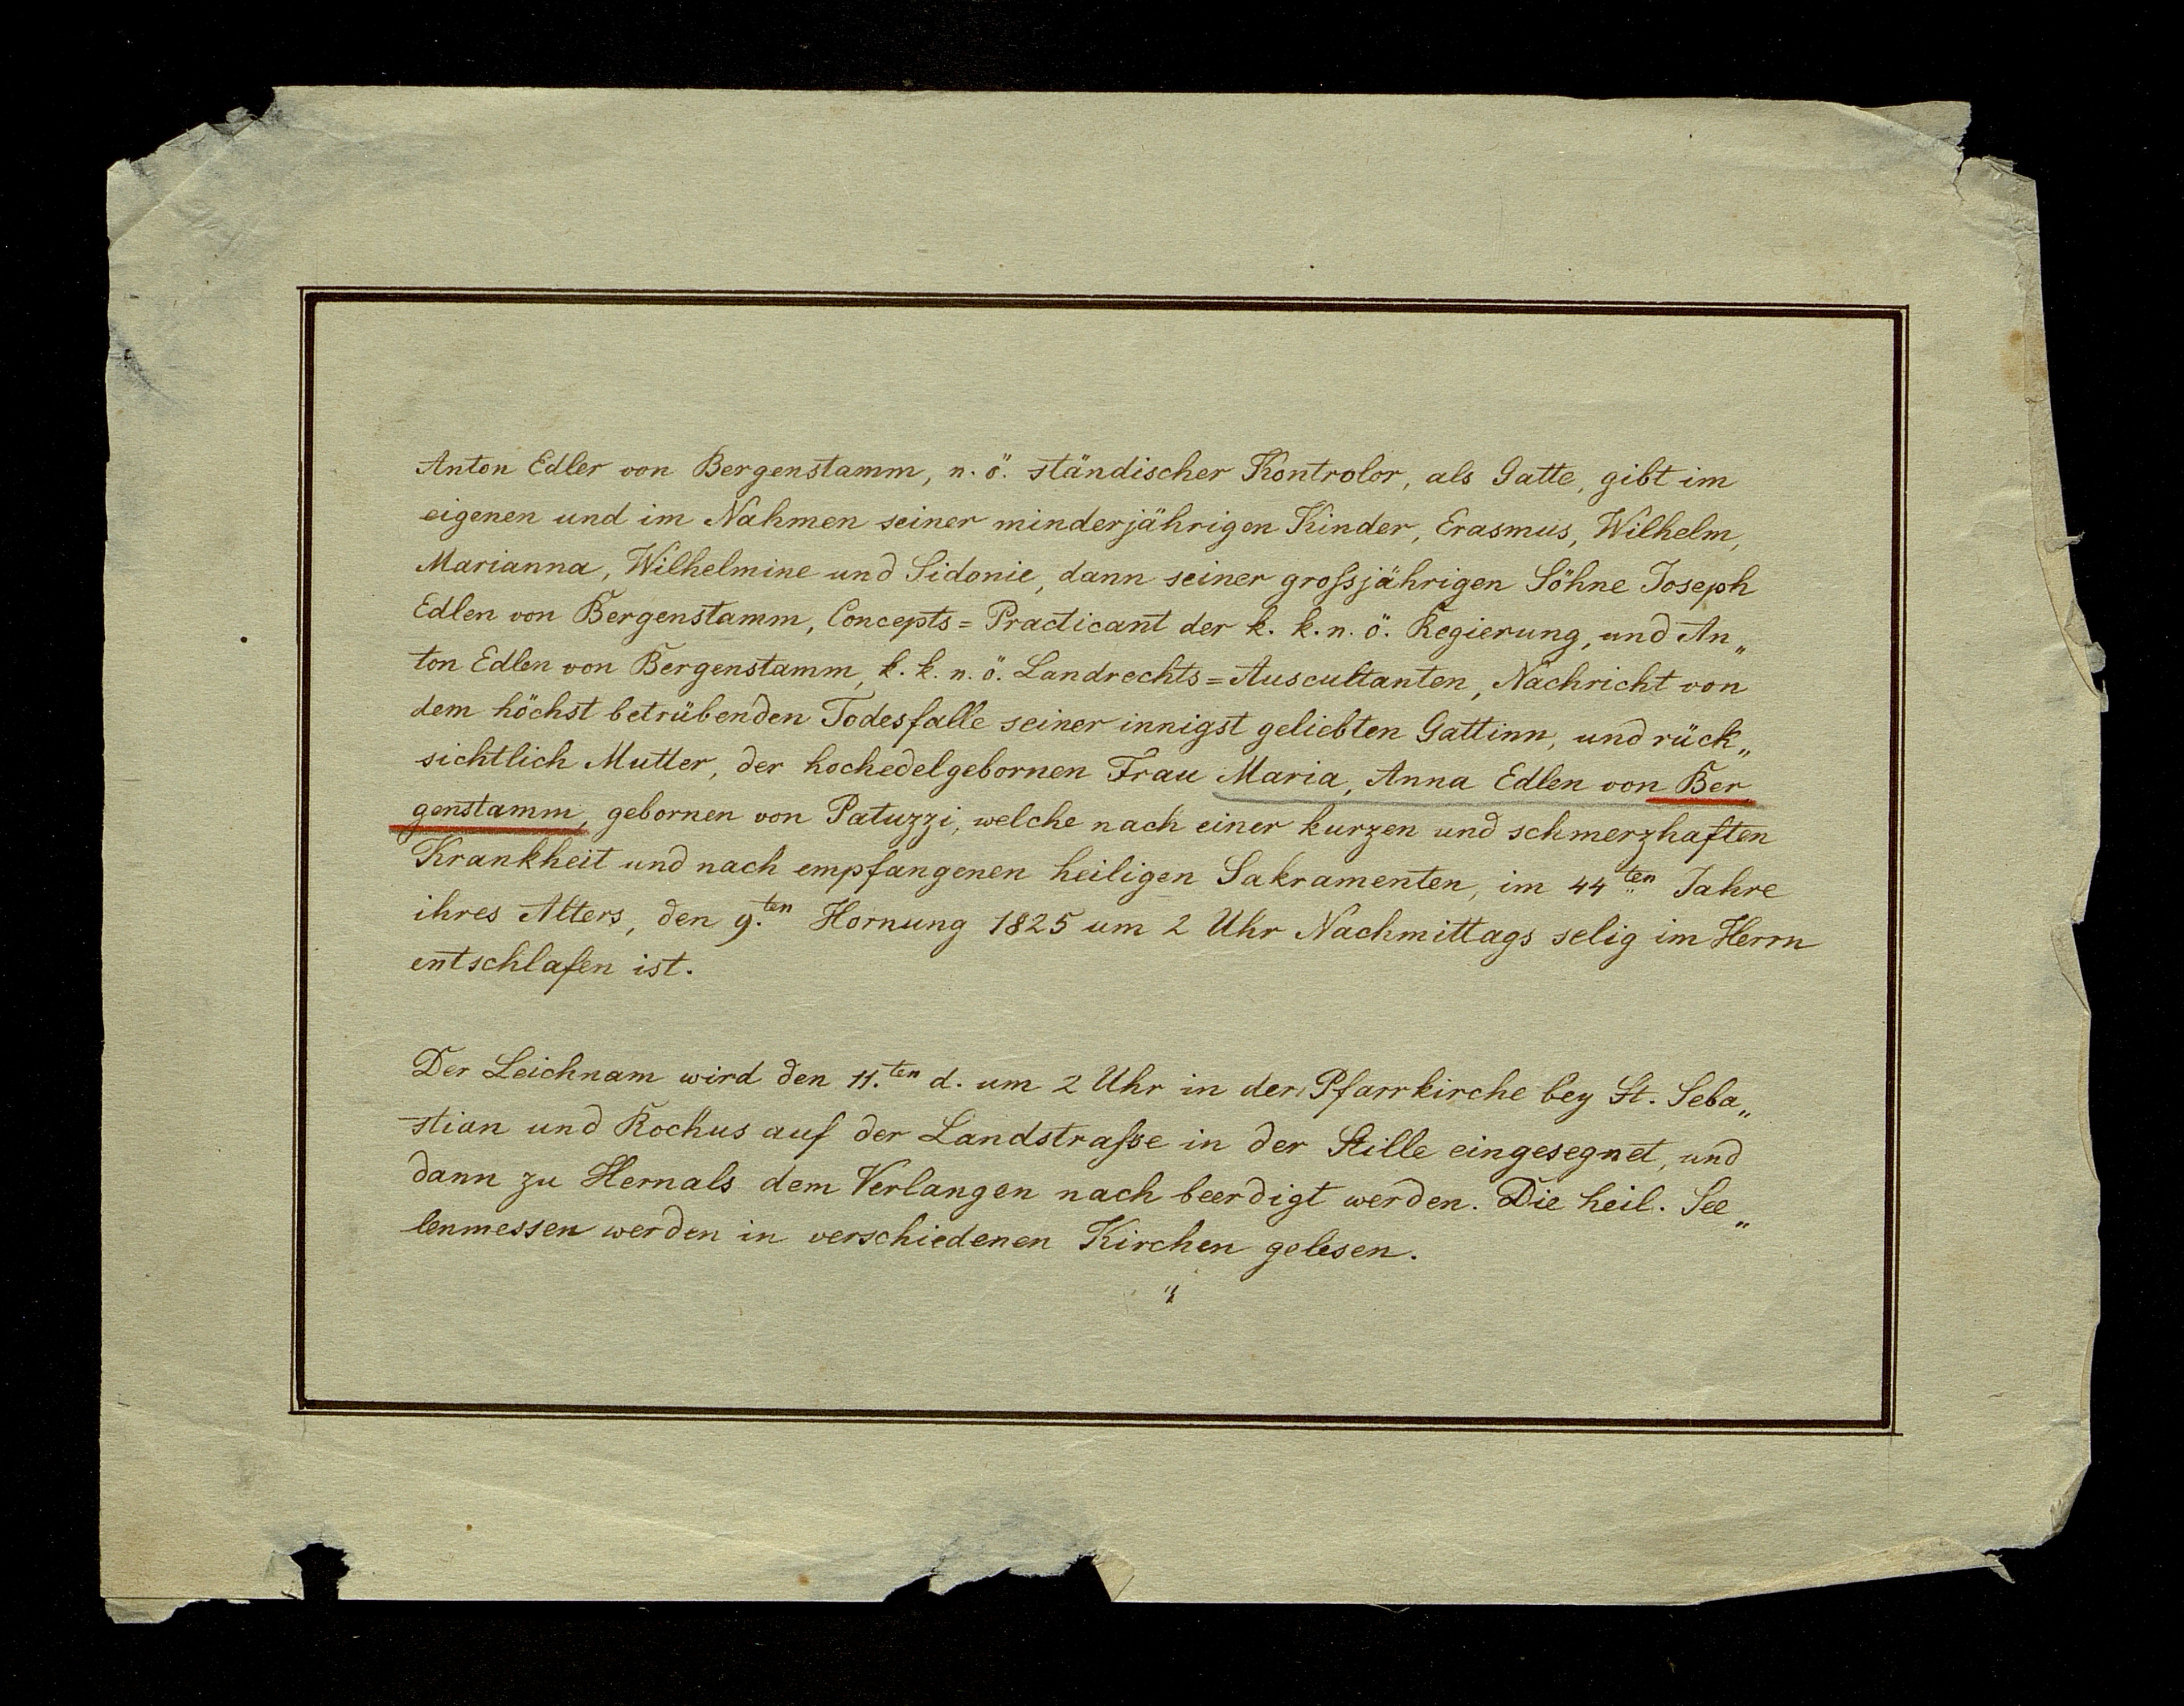 Anton Edler von Bergenstamm, n. ö. ständischer Kontrolor, als Gatte, gibt im
eigenen und im Nahmen seiner minderjährigen Kinder, Erasmus, Wilhelm,
Marianna, Wilhelmine und Sidonie, dann seiner großjährigen Söhne Joseph
Edlen von Bergenstamm, Concepts=Practicant der k. k. n. ö. Regierung, und An„
ton Edlen von Bergenstamm, k. k. n. ö. Landrechts=Auscultanten, Nachricht von
dem höchst betrübenden Todesfalle seiner innigst geliebten Gattinn, und rück„
sichtlich Mutter, der hochedelgebornen Frau Maria, Anna Edlen von Ber„
genstamm, gebornen von Patuzzi, welche nach einer kurzen und schmerzhaften
Krankheit und nach empfangenen heiligen Sakramenten, im 44ten Jahre
ihres Alters, den 9.ten Hornung 1825 um 2 Uhr Nachmittags selig im Herrn
entschlafen ist.
Der Leichnam wird den 11.ten d. um 2 Uhr in der Pfarrkirche bey St. Seba„
stian und Rochus auf der Landstraße in der Stille eingesegnet, und
dann zu Hernals dem Verlangen nach beerdigt werden. Die heil. See„
lenmessen werden in verschiedenen Kirchen gelesen.